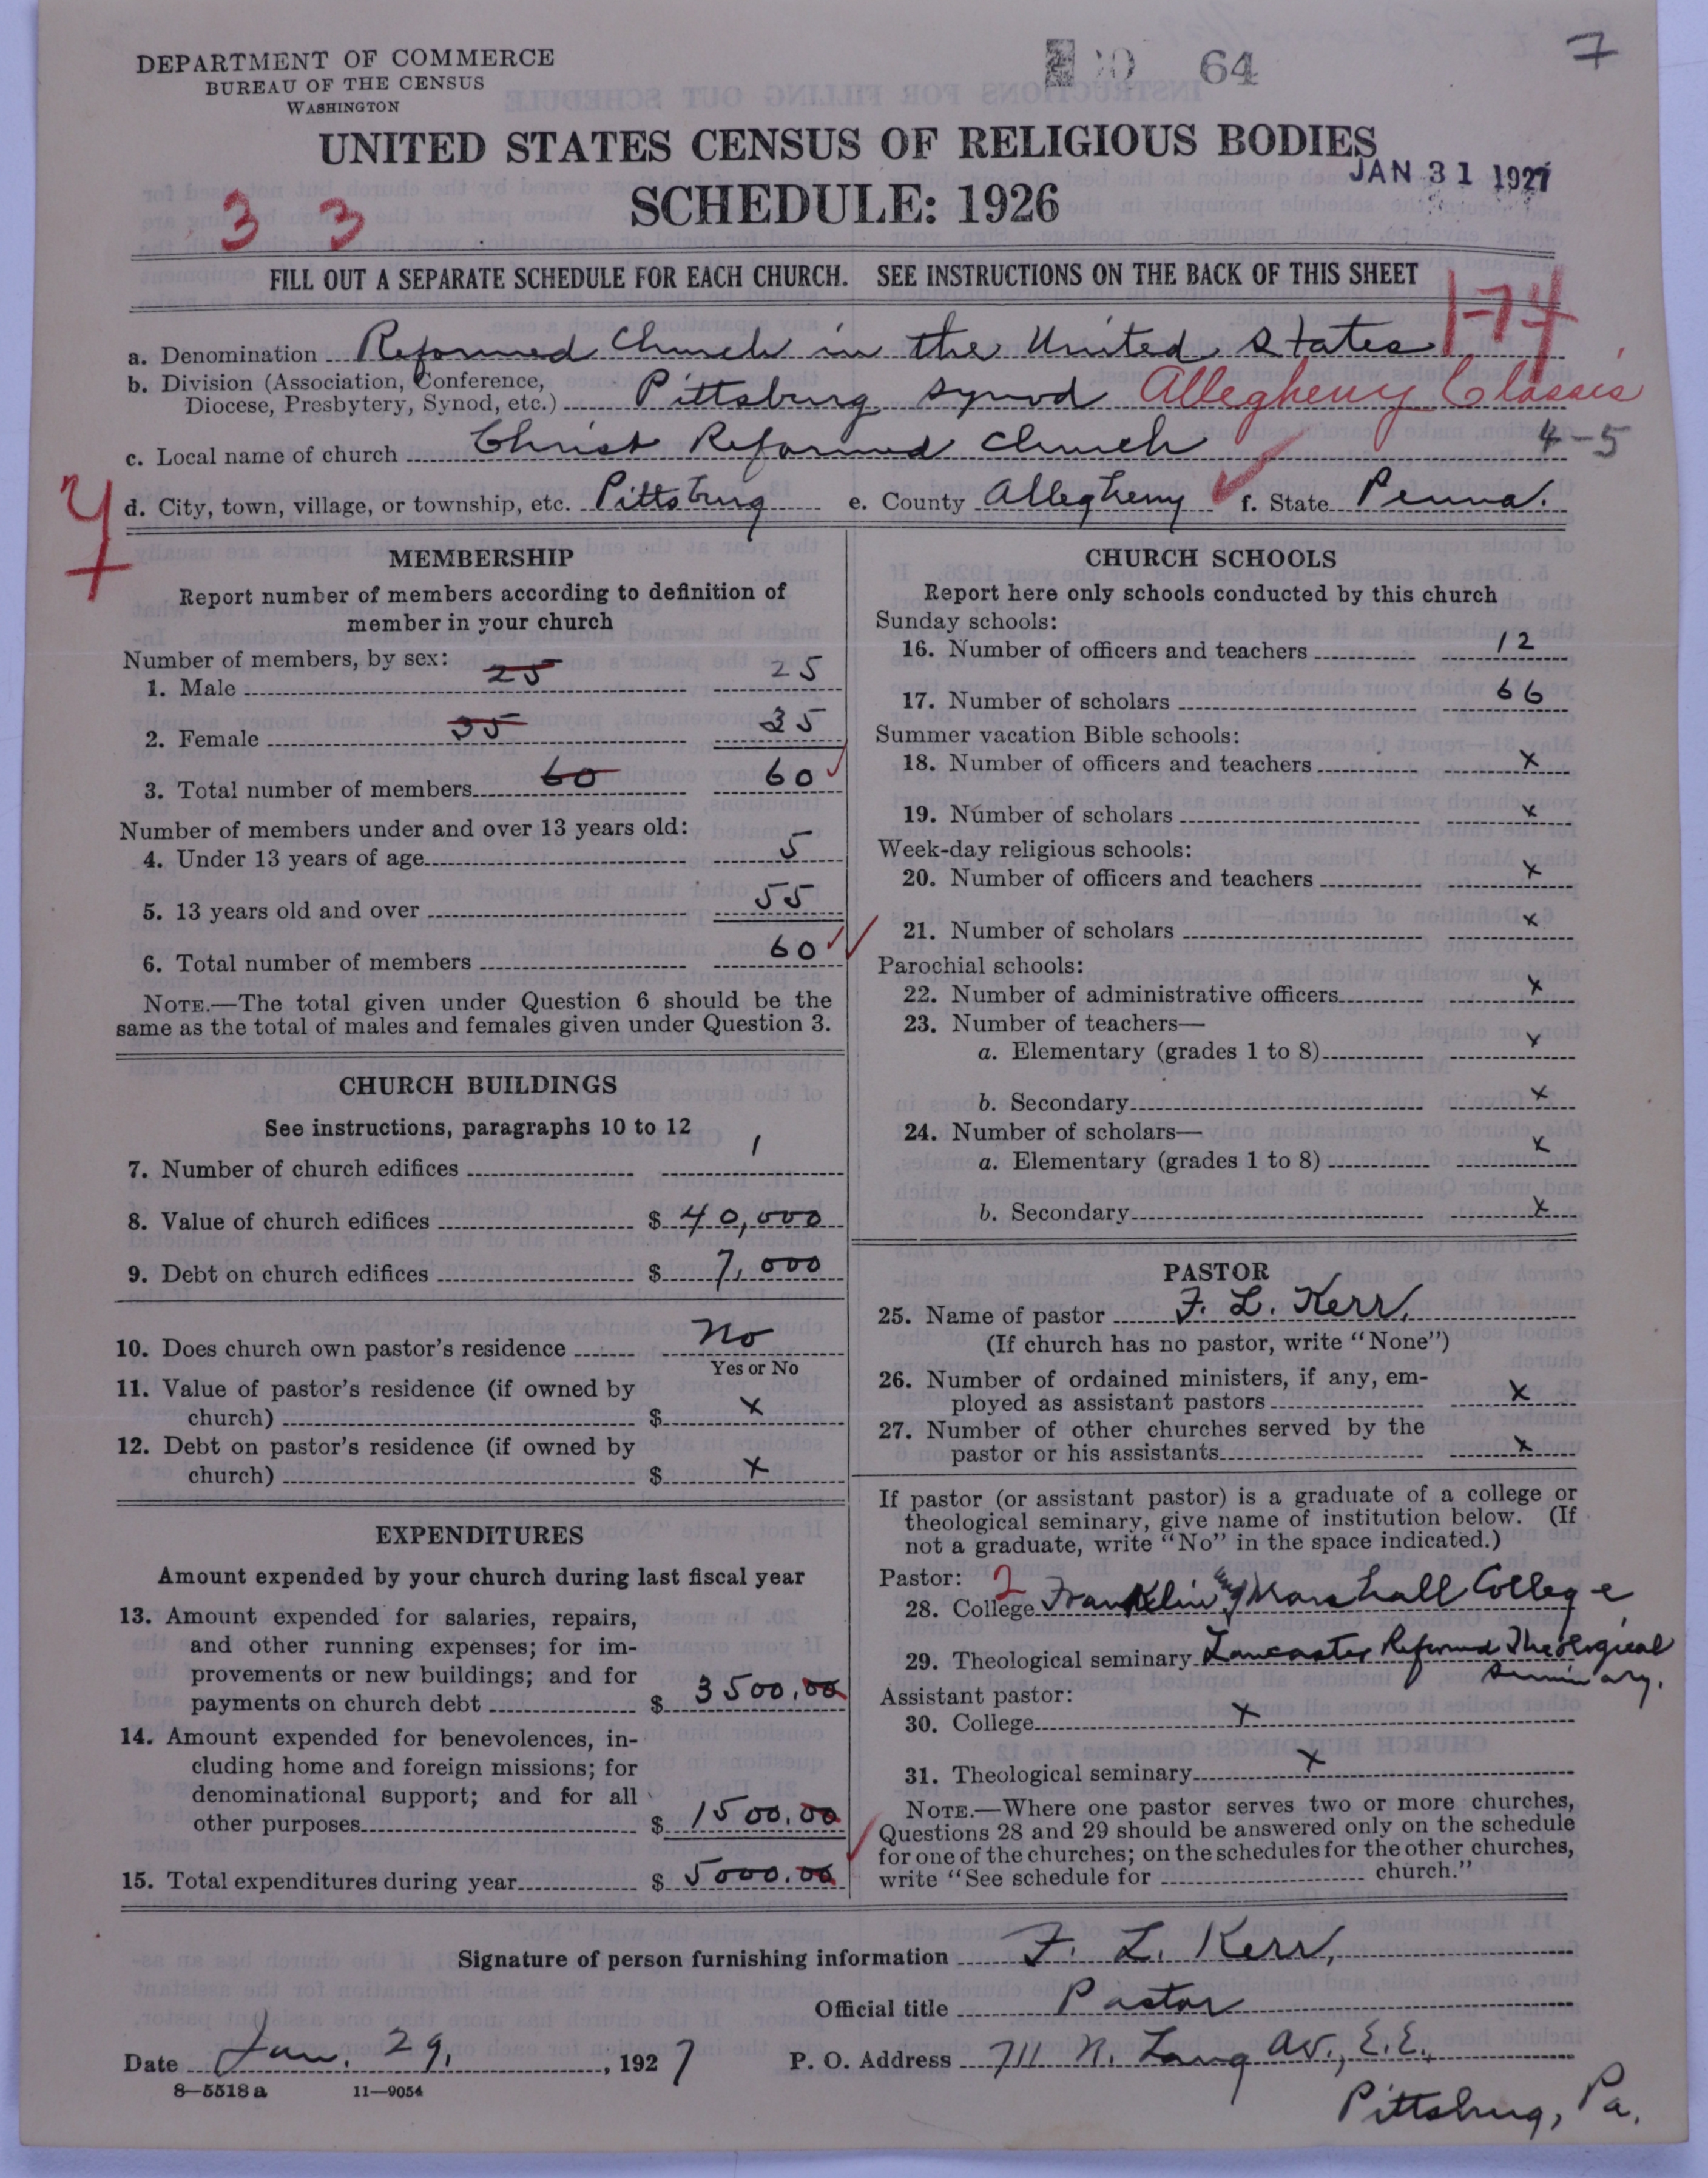 DEPARTMENT OF COMMERCE
BUREAU OF THE CENSUS
WASHINGTON
64
7
UNITED STATES CENSUS OF RELIGIOUS BODIES
JAN 31 1927
SCHEDULE: 1926
3 3
FILL OUT A SEPARATE SCHEDULE FOR EACH CHURCH. SEE INSTRUCTIONS ON THE BACK OF THIS SHEET
1-74
a. Denomination Reformed Church in the United States
b. Division (Association, Conference,
Diocese, Presbytery, Synod, etc.) Pittsburg Synod Allegheny Classis
c. Local name of church Christ Reformed Church 4-5
d. City, town, village, or township, etc. Pittsburg e. County Allegheny f. State Penna.
MEMBERSHIP
Report number of members according to definition of
member in your church
Number of members, by sex:
1. Male 25 25
2. Female 35 35
3. Total number of members 60 60
Number of members under and over 13 years old:
4. Under 13 years of age 5
5. 13 years old and over 55
6. Total number of members 60
NOTE.—The total given under Question 6 should be the
same as the total of males and females given under Question 3.
CHURCH BUILDINGS
See instructions, paragraphs 10 to 12
7. Number of church edifices 1
8. Value of church edifices $ 40,000
9. Debt on church edifices $ 7,000
10. Does church own pastor's residence No
Yes or No
11. Value of pastor's residence (if owned by
church) $ x
12. Debt on pastor's residence (if owned by
church) $ x
EXPENDITURES
Amount expended by your church during last fiscal year
13. Amount expended for salaries, repairs,
and other running expenses; for im-
provements or new buildings; and for
payments on church debt $ 3500.00
14. Amount expended for benevolences, in-
cluding home and foreign missions; for
denominational support; and for all
other purposes $ 1500.00
15. Total expenditures during year $ 5000.00
CHURCH SCHOOLS
Report here only schools conducted by this church
Sunday schools:
16. Number of officers and teachers 12
17. Number of scholars 66
Summer vacation Bible schools:
18. Number of officers and teachers x
19. Number of scholars x
Week-day religious schools:
20. Number of officers and teachers x
21. Number of scholars x
Parochial schools:
22. Number of administrative officers x
23. Number of teachers—
a. Elementary (grades 1 to 8) x
b. Secondary x
24. Number of scholars—
a. Elementary (grades 1 to 8) x
b. Secondary x
PASTOR
25. Name of pastor F. L. Kerr,
(If church has no pastor, write "None")
26. Number of ordained ministers, if any, em-
ployed as assistant pastors x
27. Number of other churches served by the
pastor or his assistants x
If pastor (or assistant pastor) is a graduate of a college or
theological seminary, give name of institution below. (If
not a graduate, write "No" in the space indicated.)
Pastor: 2
28. College Franklin and Marshall College,
29. Theological seminary Lancaster Reformed Theological
Seminary.
Assistant pastor:
30. College x
31. Theological seminary x
NOTE.—Where one pastor serves two or more churches,
Questions 28 and 29 should be answered only on the schedule
for one of the churches; on the schedules for the other churches,
write "See schedule for church."
Signature of person furnishing information F. L. Kerr,
Official title Pastor
Date Jan. 29, 1927 P. O. Address 711 N. Lang Av., E.E.,
8—5518 a 11—9054
Pittsburg, Pa.